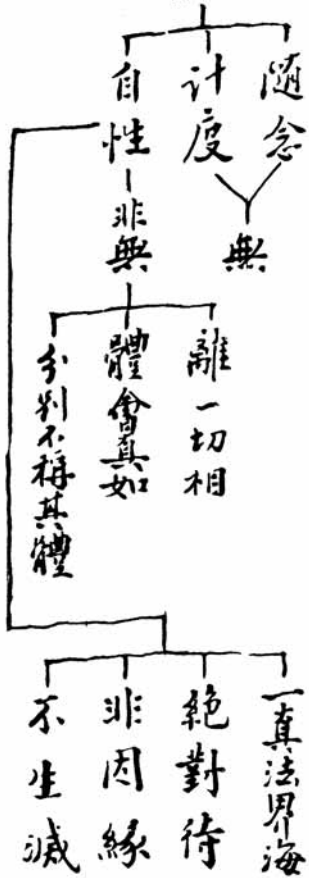 隨念
計度
自性
無
非無
離一切相
體會真如
分別不稱其體
一真法界海
絕對待
非因緣
不生滅